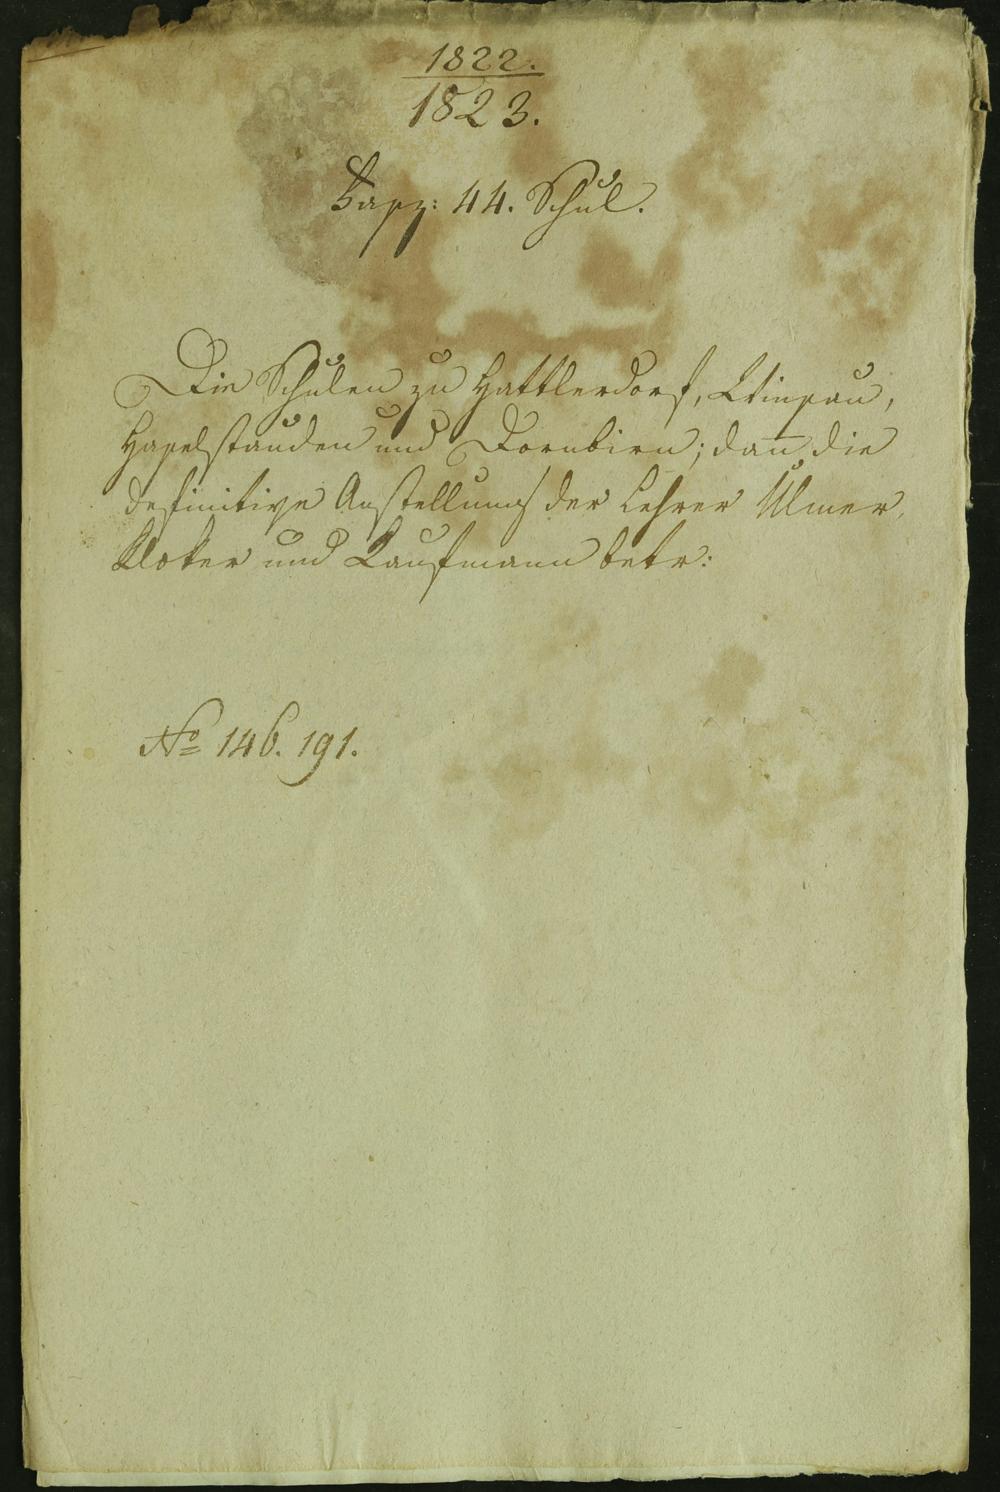 1822.
1823.
Fasz: 44. Schul.
Die Schulen zu Hattlerdorf,
Haselstauden und Dornbirn; dan̅ die
definitive Anstellung der Lehrer Ulmer,
Kloker und Kaufmann betr:
No 146. 191.